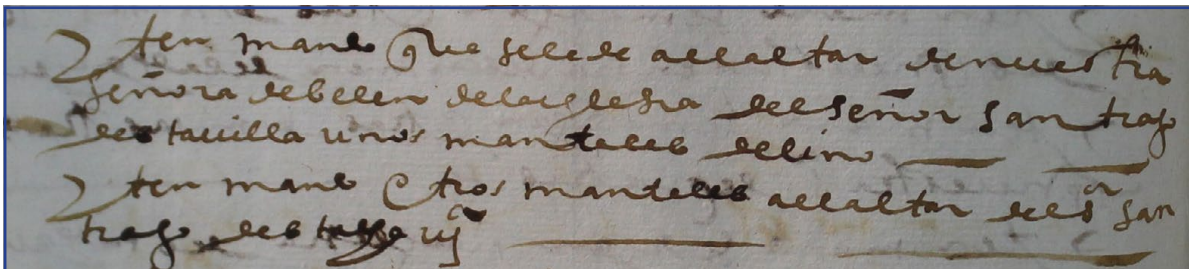 Yten mando que se le de al altar de nuestra
señora de belen de la iglesia del señor santiago
desta villa unos manteles de lino
Yten mando otros manteles al altar del sr san
tiago desta